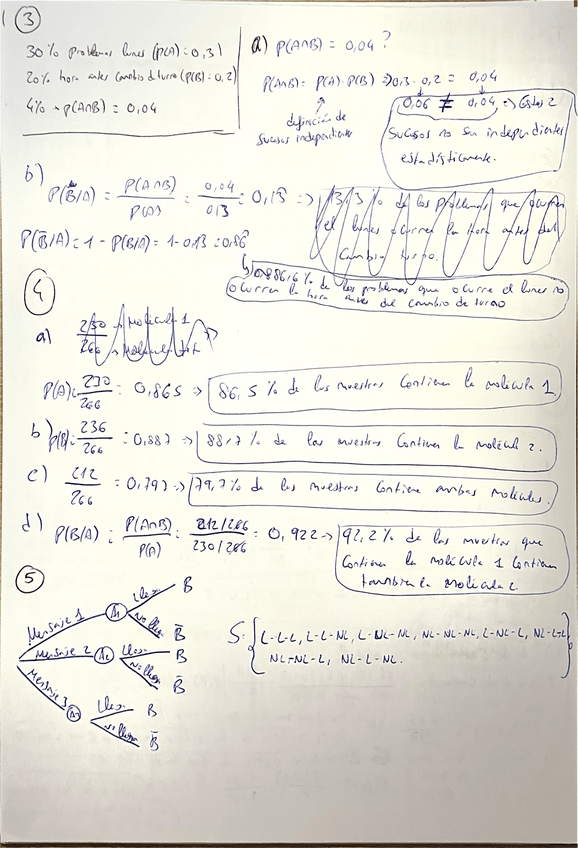 3
30% problemas lunes (p(A)=0,3)
20% hora antes cambio de turno (p(B)=0,2)
4% → p(A∩B) = 0,04
a) P(A∩B) = 0,04 ?
P(A∩B) = P(A)·P(B) => 0,3 · 0,2 = 0,04
definición de
sucesos independiente
0,06 ≠ 0,04 => Estos 2
sucesos no son independientes
estadísticamente.
b)
P(B/A) = P(A∩B)/P(A) = 0,04/0,3 = 0,13 =>
13,3% de los problemas que ocurren
el lunes ocurren la hora antes del
cambio turno.
P(B̅/A) = 1 - P(B/A) = 1 - 0,13 = 0,86
86,6% de los problemas que ocurre el lunes no
ocurren la hora antes del cambio de turno
4
a) 230 → Molécula 1
266
P(A) = 230/266 = 0,865 => 86,5% de las muestras contienen la molécula 1.
b) P(B) = 236/266 = 0,887 => 88,7% de las muestras contienen la molécula 2.
c) 212/266 = 0,797 => 79,7% de las muestras contiene ambas moléculas.
d) P(B/A) = P(A∩B)/P(A) = 212/266 / 230/266 = 0,922 => 92,2% de las muestras que
contienen la molécula 1 contienen
también la molécula 2.
5
Mensaje 1 A1 Llega B
no llega B̅
Mensaje 2 A2 Llega B
no llega B̅
Mensaje 3 Llega B
no llega B̅
S = { L-L-L, L-L-NL, L-NL-NL, NL-NL-NL, L-NL-L, NL-L-L
NL-NL-L, NL-L-NL. }